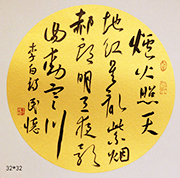 爐火照天
地红星乱紫烟
赧郎明月夜歌
曲動寒川
李白詩
32*32